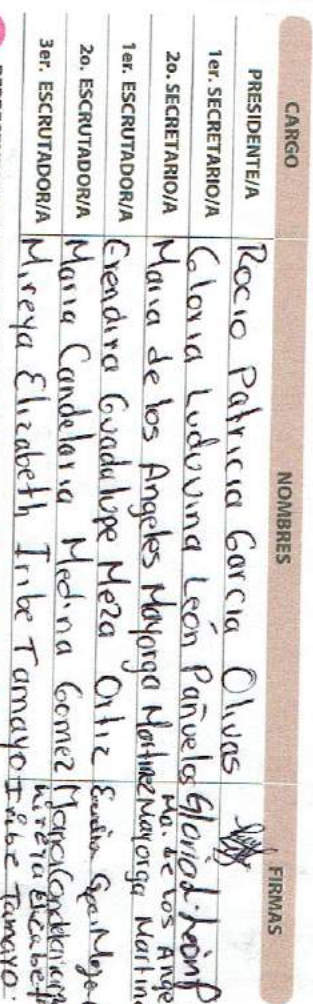 CARGO NOMBRES FIRMAS
PRESIDENTE/A Rocio Patricia Garcia Olivas
1er. SECRETARIO/A Gloria Luduvina León Pañuelas Gloria L. León P
2o. SECRETARIO/A Maria de los Angeles Mayorga Martinez Ma. de Los Ange Mayorga Martine
1er. ESCRUTADOR/A Erendira Guadalupe Meza Ortiz
2o. ESCRUTADOR/A Maria Candelaria Medina Gomez Maria Candelaria
3er. ESCRUTADOR/A Mireya Elizabeth Iribe Tamayo Mireya Elizabeth Iribe Tamayo.